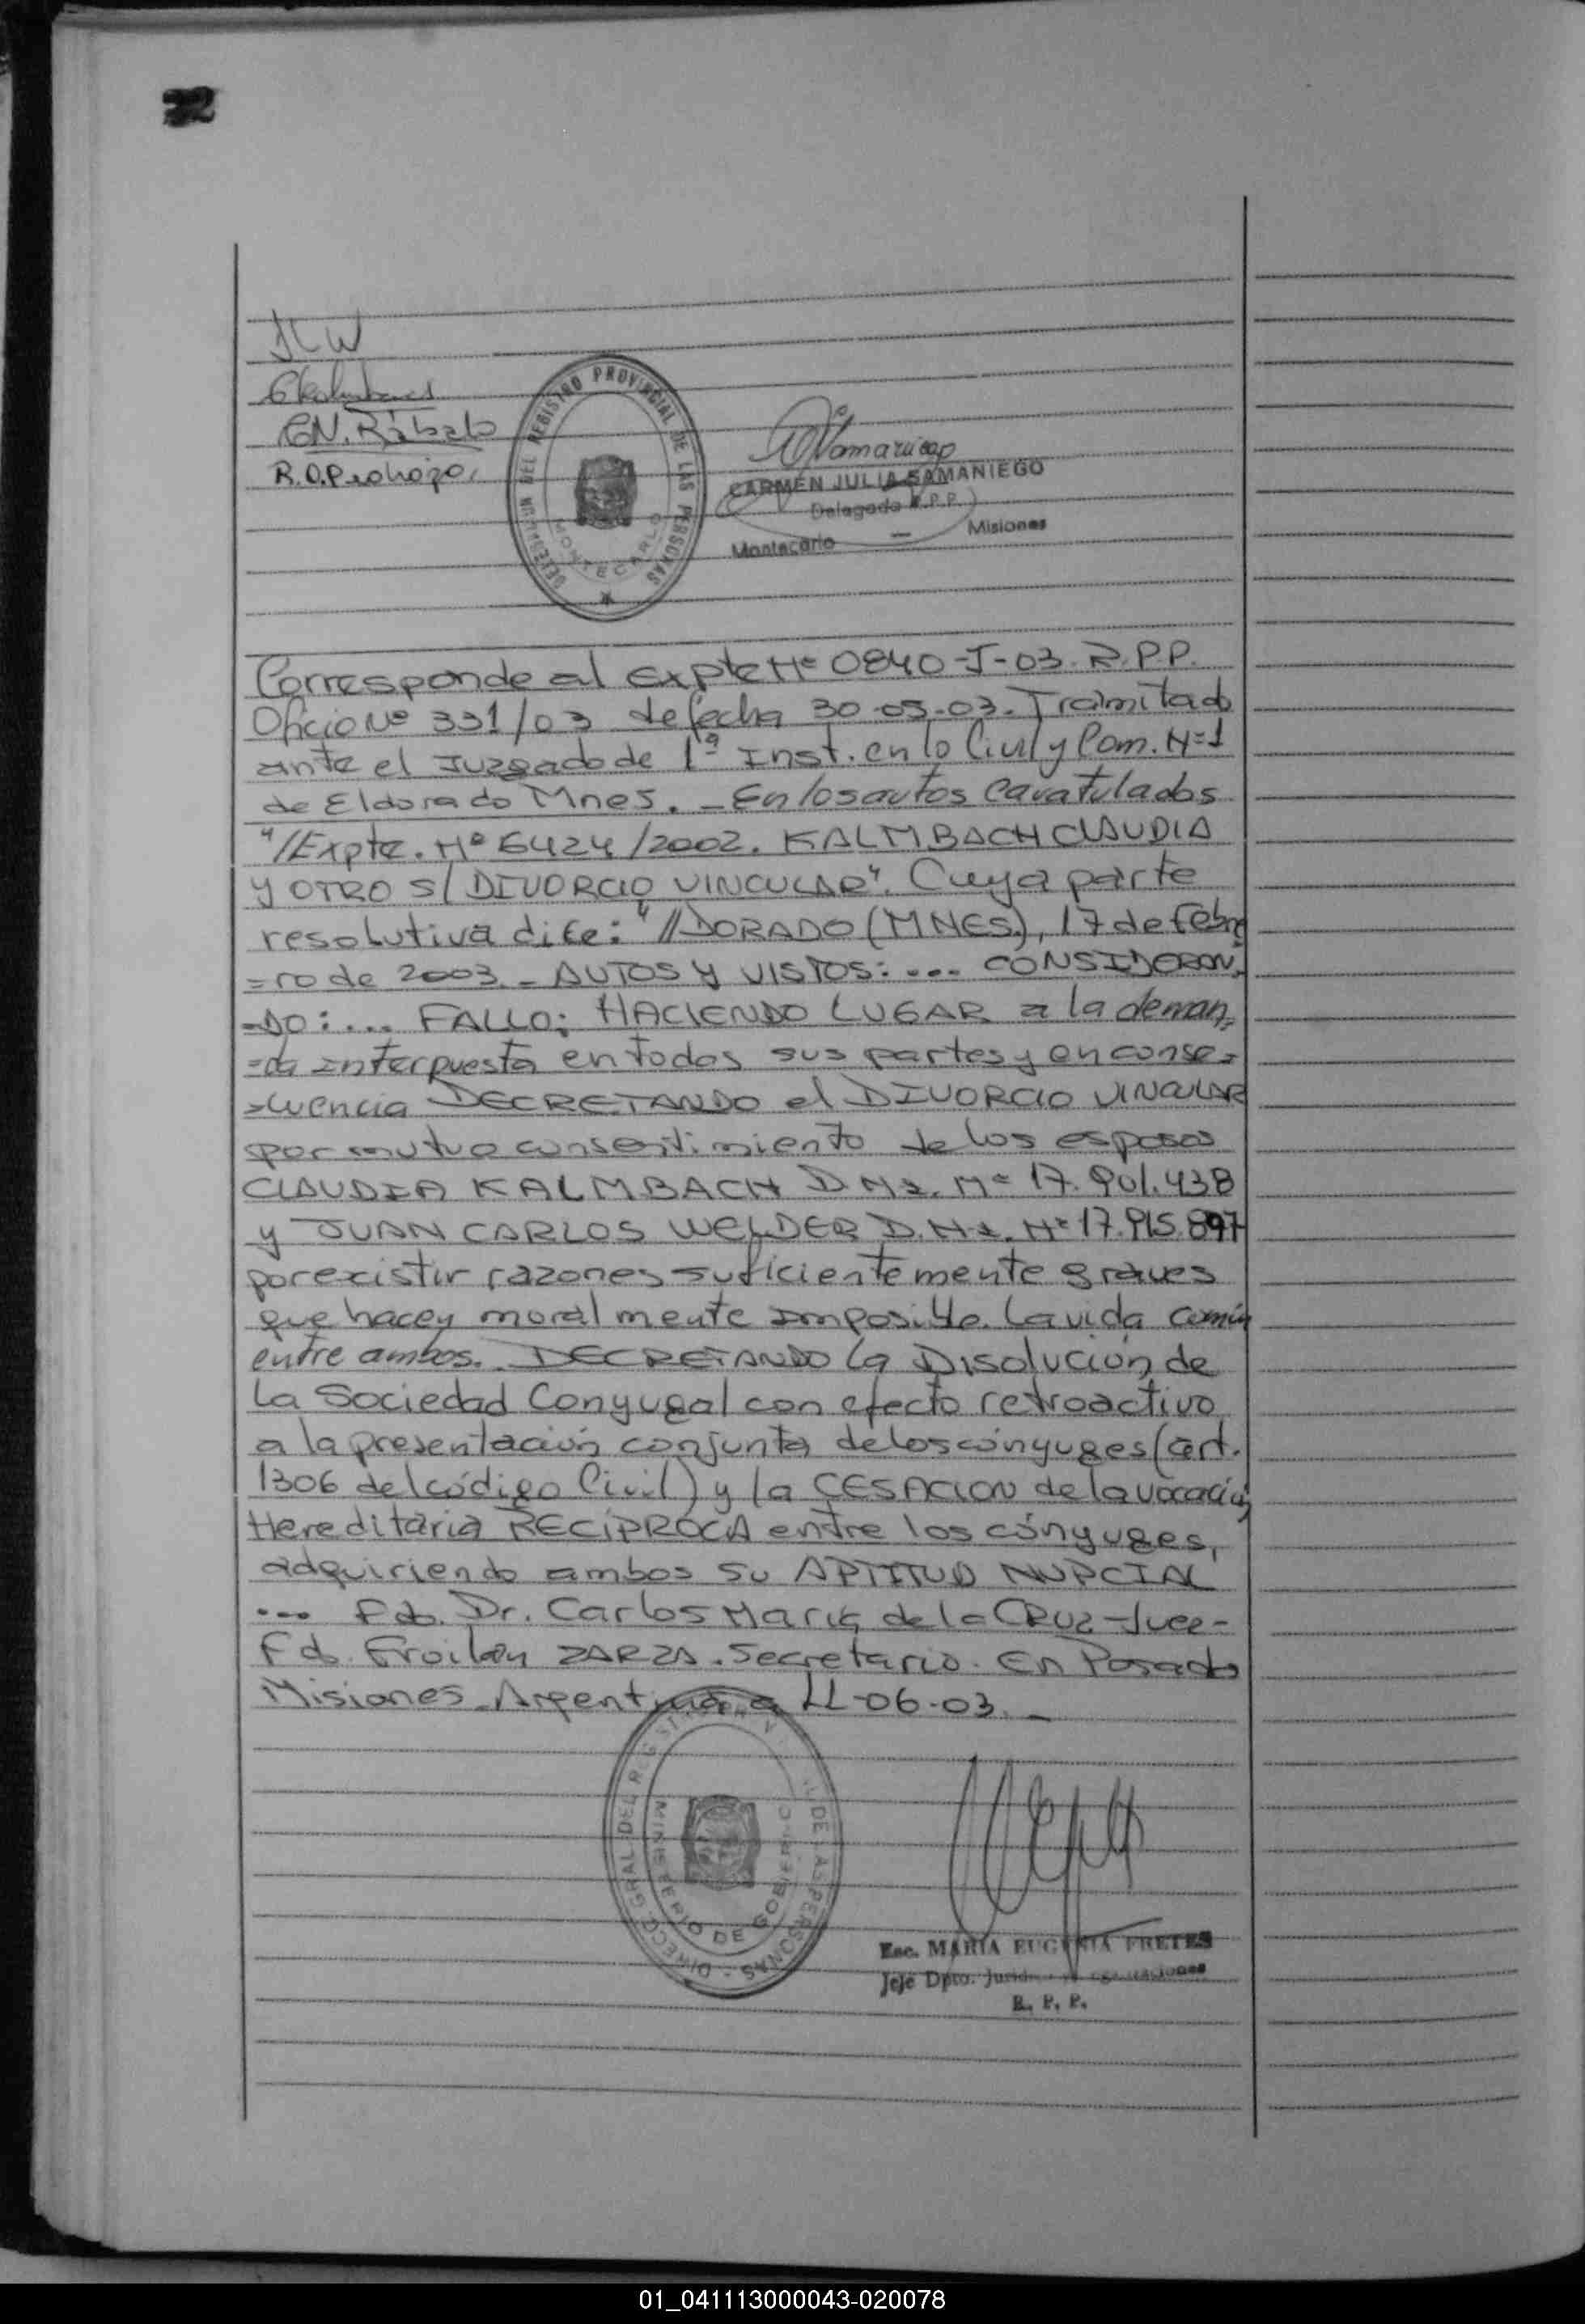 22
JCW
C Kalmbach
C.N. Rábalo
R.O. Pedrozo.
DELEGACION DEL REGISTRO PROVINCIAL DE LAS PERSONAS
MONTECARLO
CARMEN JULIA SAMANIEGO
Delegada R.P.P.
Montecarlo — Misiones
Corresponde al Expte Nº 0840-J-03. R.P.P.
Oficio Nº 331/03 de fecha 30-05-03. Tramitado
ante el Juzgado de 1ª Inst. en lo Civil y Com. Nº1
de Eldorado Mnes. _ En los autos Caratulados
"/Expte. Nº 6424/2002. KALMBACH CLAUDIA
y OTRO S/ DIVORCIO VINCULAR". Cuya parte
resolutiva dice: "//DORADO (MNES.), 17 de Febre
=ro de 2003. _ AUTOS Y VISTOS: ... CONSIDERAN=
=DO: ... FALLO: HACIENDO LUGAR a la deman=
=da interpuesta en todas sus partes y en conse=
=cuencia DECRETANDO el DIVORCIO VINCULAR
por mutuo consentimiento de los esposos
CLAUDIA KALMBACH D.N.I. Nº 17.901.438
y JUAN CARLOS WELDER D.N.I. Nº 17.915.897
por existir razones suficientemente graves
que hacen moralmente imposible la vida común
entre ambos. DECRETANDO la Disolución de
la Sociedad Conyugal con efecto retroactivo
a la presentación conjunta de los cónyuges (art.
1306 del código Civil) y la CESACION de la vocación
Hereditaria RECÍPROCA entre los cónyuges,
adquiriendo ambos su APTITUD NUPCIAL
... Fdo. Dr. Carlos María de la CRUZ - Juez -
Fdo. Froilán ZARZA. Secretario. En Posadas
Misiones - Argentina a 11-06-03. _
DIRECC. GRAL. DEL REGIST. PROV. DE LAS PERSONAS
MINISTERIO DE GOBIERNO
Esc. MARIA EUGENIA FRETES
Jefe Dpto.
R. P. P.
01_041113000043-020078